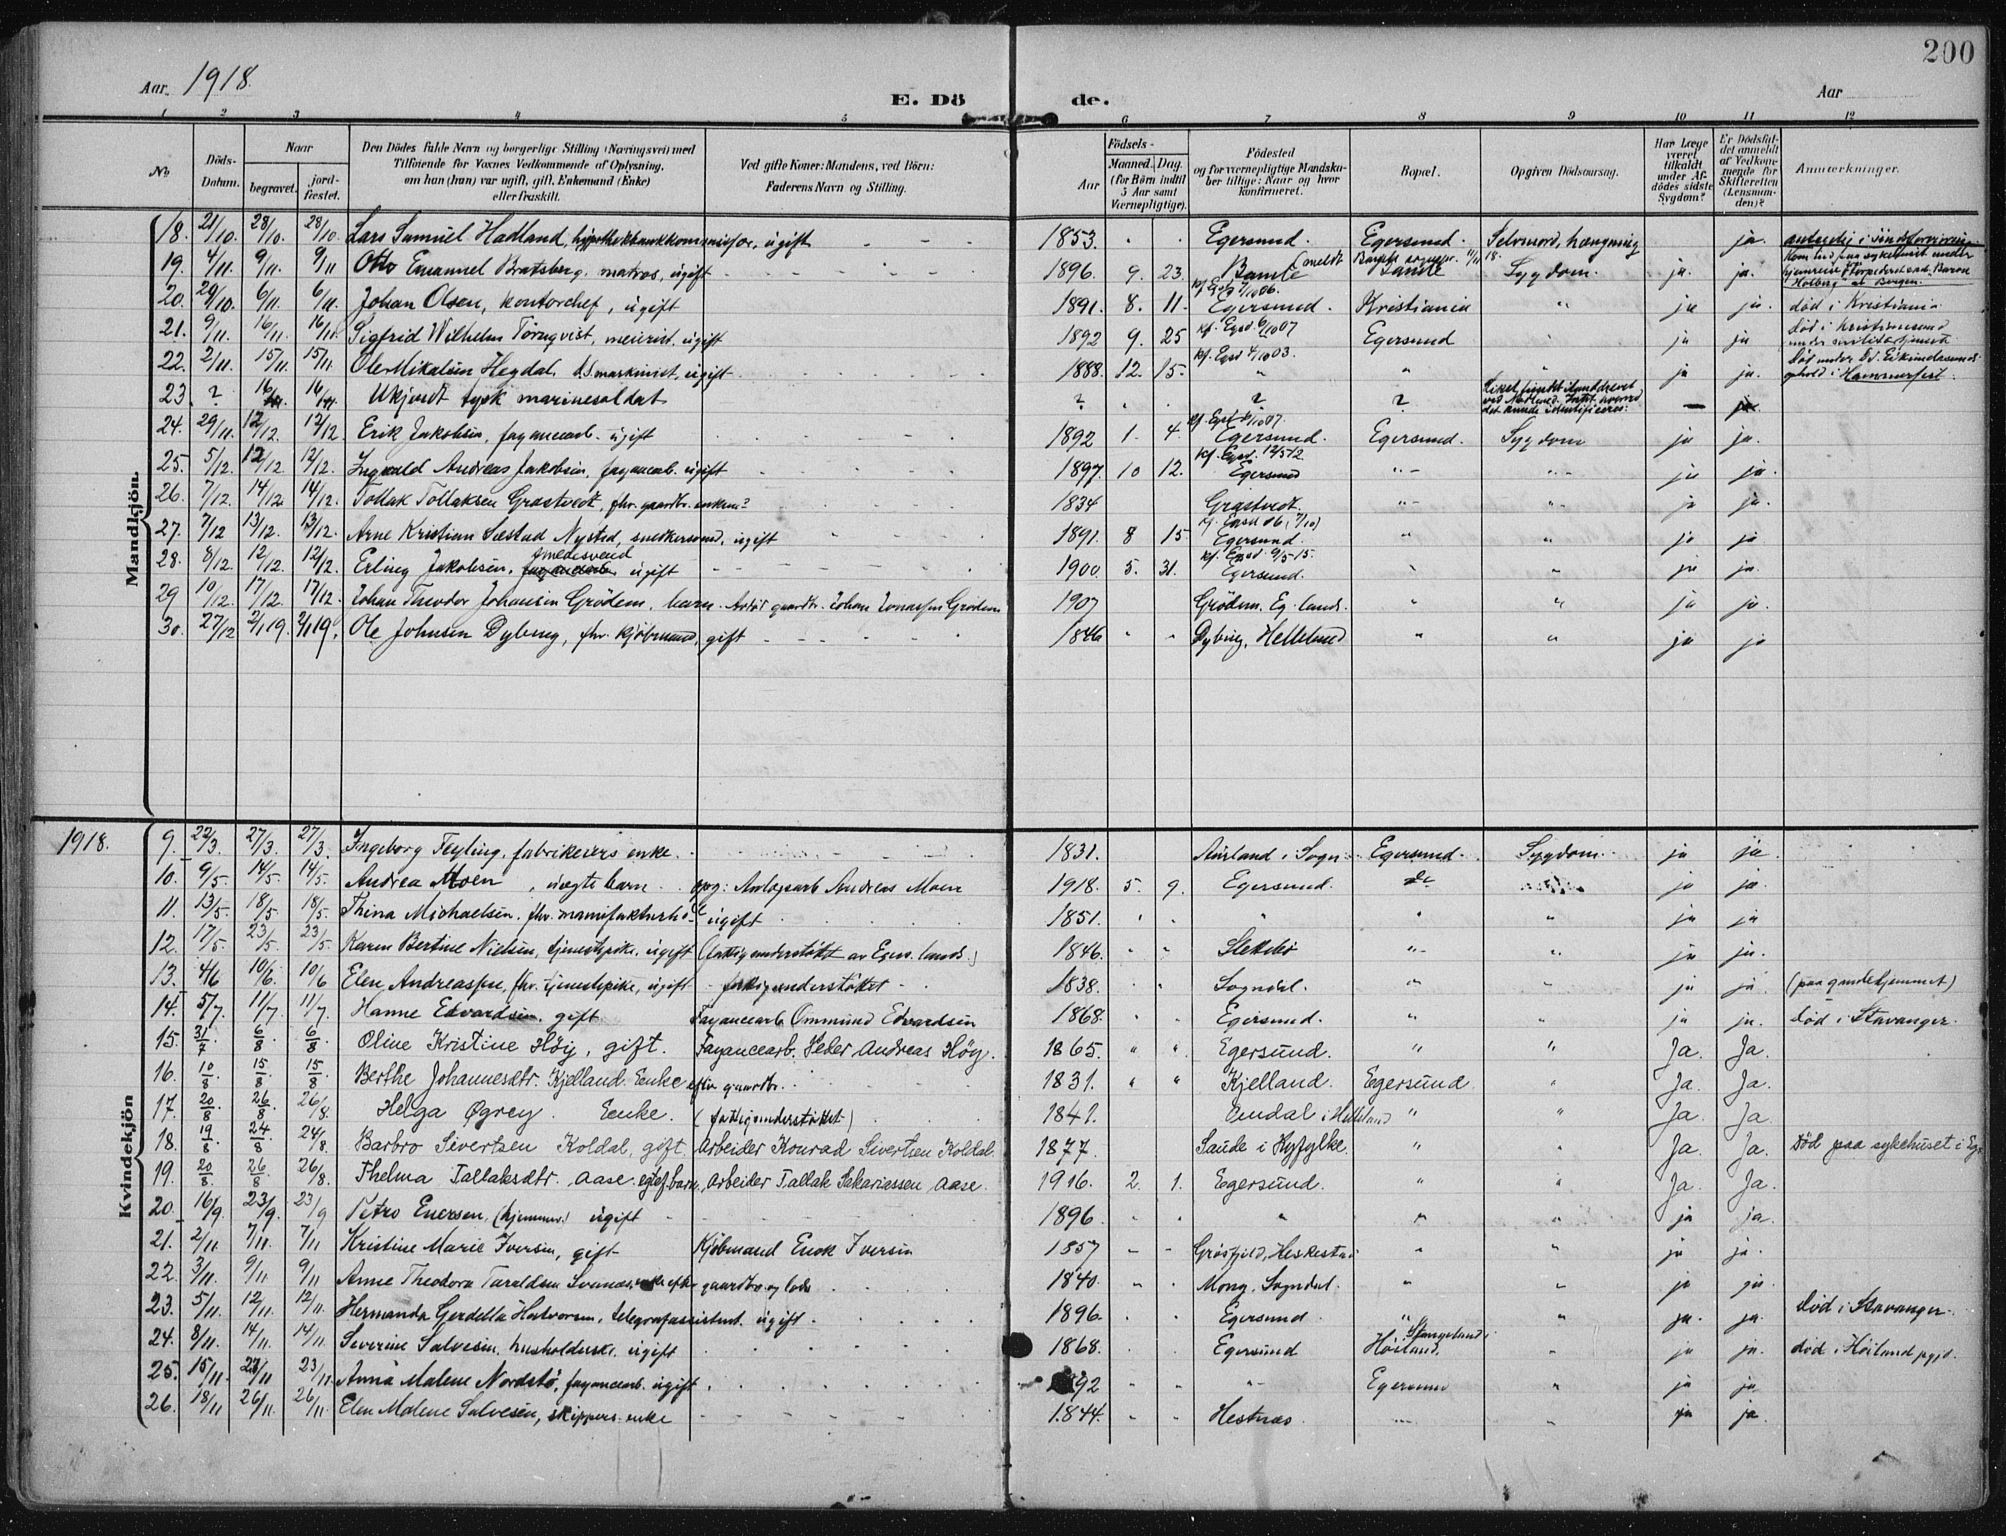 200
Aar 1918.
E. Dö de.
Aar
1 2 3 4 5 6 7 8 9 10 11 12
No
Döds-Datum.
Naar
begravet.
jord-fæstet.
Den Dödes fulde Navn og borgerlige Stilling (Næringsvei) med
Tilföiende for Voxnes Vedkommende af Oplysning,
om han (hun) var ugift, gift, Enkemand (Enke)
eller fraskilt.
Ved gifte Koner: Mandens, ved Börn:
Faderens Navn og Stilling.
Födsels-
Aar
Maaned. Dag.
(for Börn indtil
5 Aar samt
Værnepligtige).
Födested
og for værnepligtige Mandska-
ber tillige: Naar og hvor
konfirmeret.
Bopæl.
Opgiven Dödsaarsag.
Har Læge
været
tilkaldt
under Af-
dödes sidste
Sygdom?
Er Dödsfal-
det anmeldt
af Vedkom-
mende for
Skifteretten
(Lensman-
den)?
Anmærkninger.
Mandkjön.
18. 21/10. 28/10. 28/10. Lars Samuel Hadland, hypothekbankkommissær, ugift 1853. Egersund. Egersund. Selvmord, hængning ja.
19. 4/11. 9/11. 9/11 Otto Emanuel Bratsberg, matros, ugift 1896. 9. 23. Bamle Bamle Sygdom. ja. ja.
20. 29/10. 6/11. 6/11. Johan Olsen, kontorchef, ugift 1891. 8. 11. Egersund. Kristiania " ja ja. død i Kristiania
21. 9/11. 16/11. 16/11. Sigfrid Wilhelm Törnqvist, meierist, ugift 1892 9. 25 kf. Egsd 6/10 07 Egersund ja ja død i Kristiansund
22. 2/11. 15/11. 15/11. Ole Mikalsen Hegdal, d.s. maskinist, ugift 1888. 12. 15. kf. Egsd 4/10 03. " " " ja ja ophold i Hammerfest.
23. ? 16/11. 16/11. Ukjendt tysk marinesoldat ? ? ? — ja
24. 29/11. 12/12. 12/12. Erik Jakobsen, fayancearb. ugift 1892 1. 4. Egersund. Egersund. Sygdom ja ja.
25. 5/12. 12/12. 12/12. Ingvald Andreas Jakobsen, fayancearb. ugift 1897. 10 12. kf. Egsd. 12/5 12 Egersund " " ja ja.
26. 7/12. 14/12. 14/12. Tollak Tollaksen Grastvedt, fhv. gaardbr. enkem? 1834 Grastvedt. " " ja ja.
27. 7/12 13/12. 13/12. Arne Kristian Sæstad Nystad, snedkersvend, ugift 1891. 8 15 Egersund. " " ja ja.
28. 8/12. 12/12. 12/12. Erling Jakobsen, smedesvend ugift 1900. 5. 31. kf. Egsd. 9/5-15. Egersund. " " ja ja.
29 10/12. 17/12. 17/12. Johan Theodor Johansen Grödem, barn. gaardbr. Johan Jonassen Grödem 1907 Grödem. Eg. lands. " " ja ja.
30. 27/12 2/1 19. 2/1 19. Ole Johnsen Dybing, fhv. kjöbmand, gift 1846 " " Dybing, Helleland " " ja ja
1918.
Kvindekjön
9. 22/3. 27/3. 27/3. Ingeborg Feyling, fabrikeiers enke. 1831. Aurland i Sogn. Egersund. Sygdom. ja ja.
10. 9/5. 14/5. 14/5. Andrea Moen, uægte barn. opg: Anlægsarb Andreas Moen 1918. 5. 9. Egersund. do ja ja.
11. 13/5. 18/5. 18/5. Thina Michaelsen, fhv. manufakturh. ugift 1851. " " " " " ja ja
12. 17/5. 23/5. 23/5 Karen Bertine Nielsen, tjenestepike, ugift (fattigunderstöttet av Egers. lands.) 1846. " " Slettebö " " ja ja.
13. 4/6 10/6. 10/6 Elen Andreassen, fhv. tjenestepike, ugift - fattigunderstöttet - 1838. " " Sogndal. " " ja ja. (paa gamlehjemmet)
14. 5/7. 11/7. 11/7 Hanne Edvardsen, gift Fayancearb. Ommund Edvardsen 1868. " " Egersund. " " ja ja. død i Stavanger.
15. 31/7 6/8 6/8. Oline Kristine Höy, gift. Fayancearb. Peder Andreas Höy. 1865. " " Egersund. " " Ja. Ja.
16. 10/8 15/8 15/8 Berthe Johannesdtr. Kjelland. Enke efter gaardbr. 1831. " " Kjelland. Egersund " Ja. Ja.
17. 20/8 26/8 26/8. Helga Øgrey. Enke. (fattigunderstöttet) 1841. Omdal i Helleland " " Ja. Ja.
18. 19/8 24/8 24/8. Barbro Sivertsen Koldal, gift. Arbeider Konrad Sivertsen Koldal. 1877. Saude i Ryfylke. " " Ja. Ja. Død paa sykehuset i Eg.
19. 20/8 26/8 26/8. Thelma Tallaksdtr. Aase. egtef. barn. Arbeider Tallak Sakariassen Aase. 1916. 2. 1. Egersund. " " Ja. Ja.
20. 16/9. 23/9. 23/9 Petro Enersen (hjemmev.) ugift 1896. " " " " " ja ja.
21. 2/11 7/11. 7/11 Kristine Marie Iversen, gift Kjöbmand Enok Iversen 1857 " " Heskestad " " ja ja.
22. 3/11. 9/11. 9/11. Anne Theodora Taraldsen Svanes, enke efter gaardbr. og lods 1840. " " Mong, Sogndal. " " ja ja.
23. 5/11. 12/11. 12/11. Hermanda Gerdella Halvorsen, telegrafassistent, ugift. 1896. Egersund " " ja. ja. død i Stavanger.
24. 8/11. 14/11. 14/11. Severine Salvesen, husholderske, ugift 1868. Egersund Stangeland Höiland. " ja ja. død i Höiland pgjd.
25. 15/11. 23/11 23/11. Anna Malene Nordstö, fayancearb. ugift 1892 " " " Egersund " ja ja
26. 18/11 26/11. 26/11. Elen Malene Salvesen, skippers enke 1844. " " Hestnæs " " ja ja.